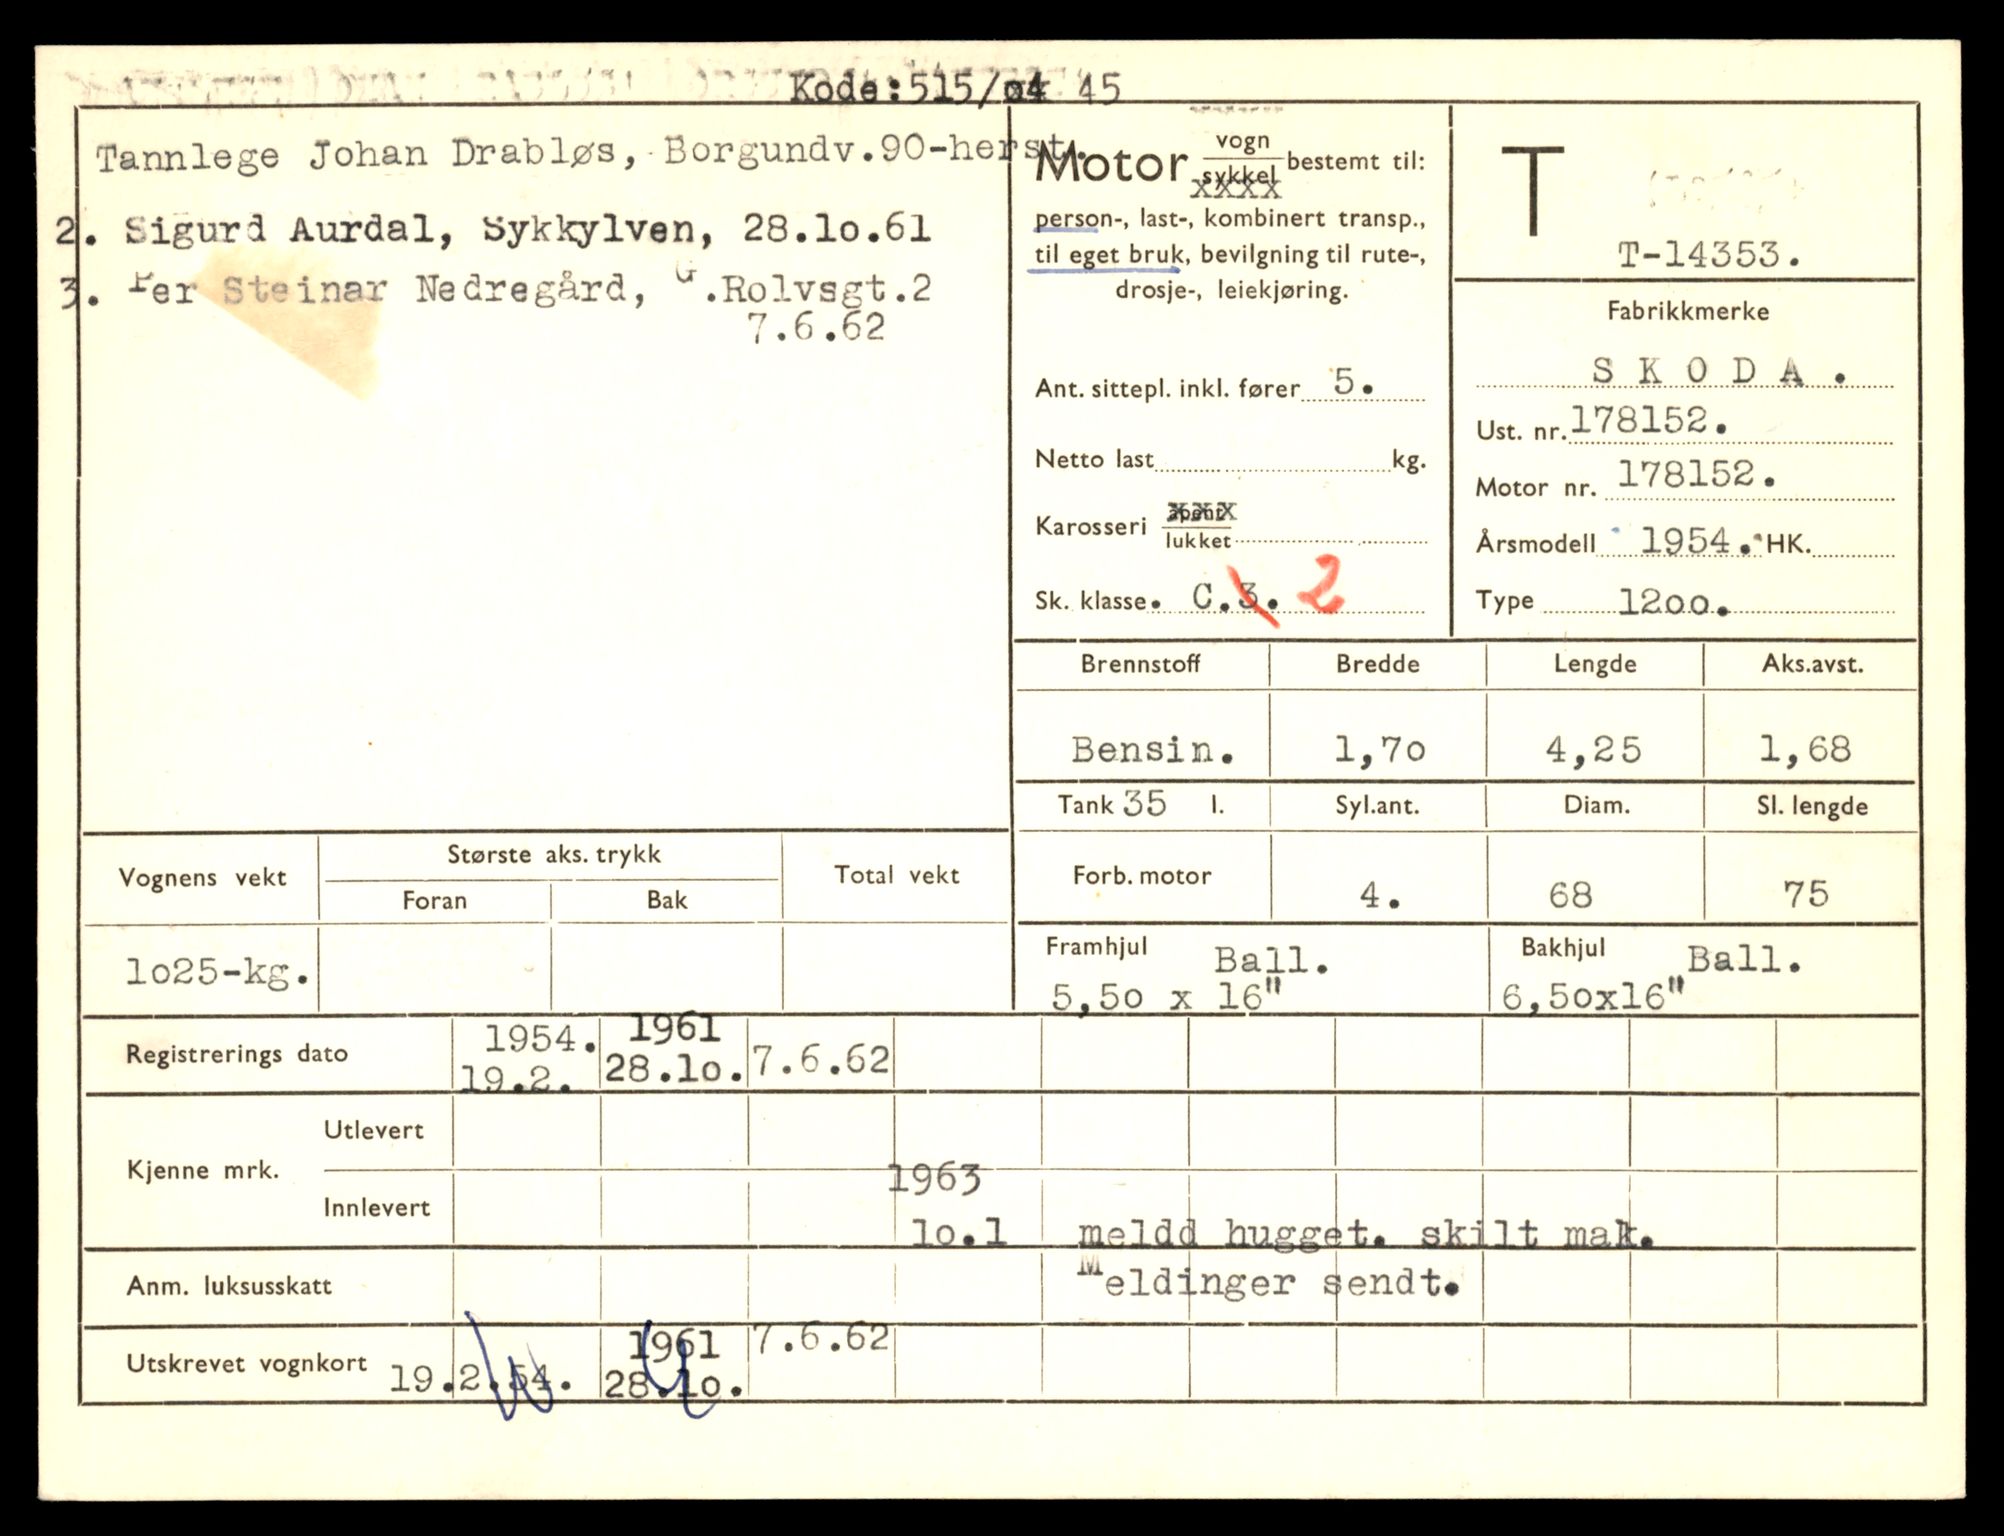 Kode:515/o4 45
Tannlege Johan Drabløs, Borgundv.90-herst.
2. Sigurd Aurdal, Sykkylven, 28.lo.61
3. Per Steinar Nedregård, G.Rolvsgt.2
7.6.62
Motor vogn sykkel bestemt til:
xxxx
person-, last-, kombinert transp.,
til eget bruk, bevilgning til rute-,
drosje-, leiekjøring.
Ant. sittepl. inkl. fører 5.
Netto last kg.
Karosseri åpent lukket
xxx
Sk. klasse. C.3. 2
T
T-14353.
Fabrikkmerke
S K O D A .
Ust. nr. 178152.
Motor nr. 178152.
Årsmodell 1954. HK.
Type 12oo.
Brennstoff Bredde Lengde Aks.avst.
Bensin. 1,7o 4,25 1,68
Tank 35 l. Syl.ant. Diam. Sl. lengde
Forb. motor 4. 68 75
Framhjul Ball. Bakhjul Ball.
5,5o x 16" 6,5ox16"
Vognens vekt Største aks. trykk Total vekt
Foran Bak
lo25-kg.
Registrerings dato 1954. 1961 7.6.62
19.2. 28.lo.
Kjenne mrk. Utlevert
Innlevert 1963
lo.l meldd hugget. skilt mak.
Anm. luksusskatt Meldinger sendt.
Utskrevet vognkort 19.2.54. 1961 7.6.62
28.lo.